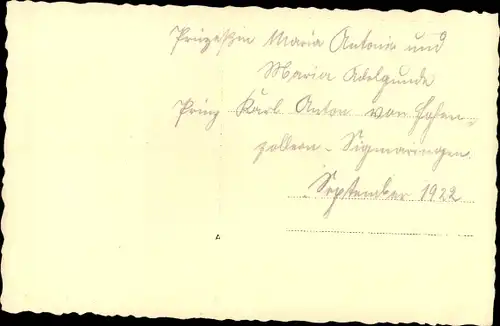 Prinzeßin Maria Antonia und
Maria Adelgunde
Prinz Karl Anton von Hohen-
zollern - Sigmaringen.
September 1922